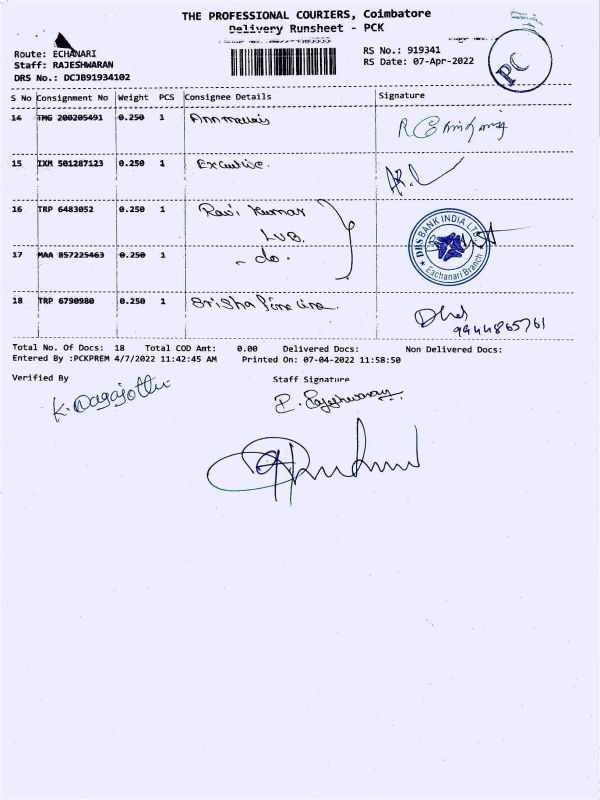 THE PROFESSIONAL COURIERS, Coimbatore
Delivery Runsheet - PCK
Route: ECHANARI
Staff: RAJESHWARAN
DRS No.: DCJB91934102
RS No.: 919341
RS Date: 07-Apr-2022
PC
S No Consignment No Weight PCS Consignee Details Signature
14 TMG 200205491 0.250 1
15 IXM 501287123 0.250 1 Executive.
16 TRP 6483052 0.250 1 Ravi Kumar
LVB.
DBS BANK INDIA LTD
Eachanari Branch
17 MAA 857225463 0.250 1 - do.
18 TRP 6790980 0.250 1
9944865761
Total No. Of Docs: 18 Total COD Amt: 0.00 Delivered Docs: Non Delivered Docs:
Entered By :PCKPREM 4/7/2022 11:42:45 AM Printed On: 07-04-2022 11:58:50
Verified By Staff Signature
P. Rajeshwaran